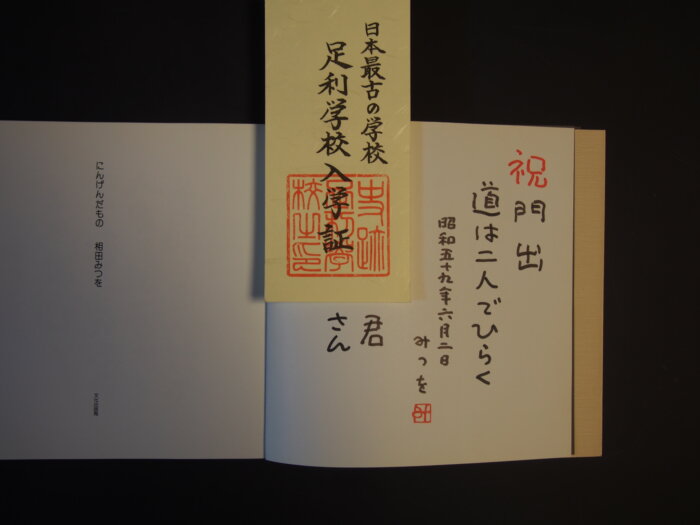 祝門出
道は二人でひらく
昭和五十九年六月二日
みつを
君
さん
日本最古の学校
足利学校入学証
史跡
足利學
校之印
にんげんだもの 相田みつを
文化出版局